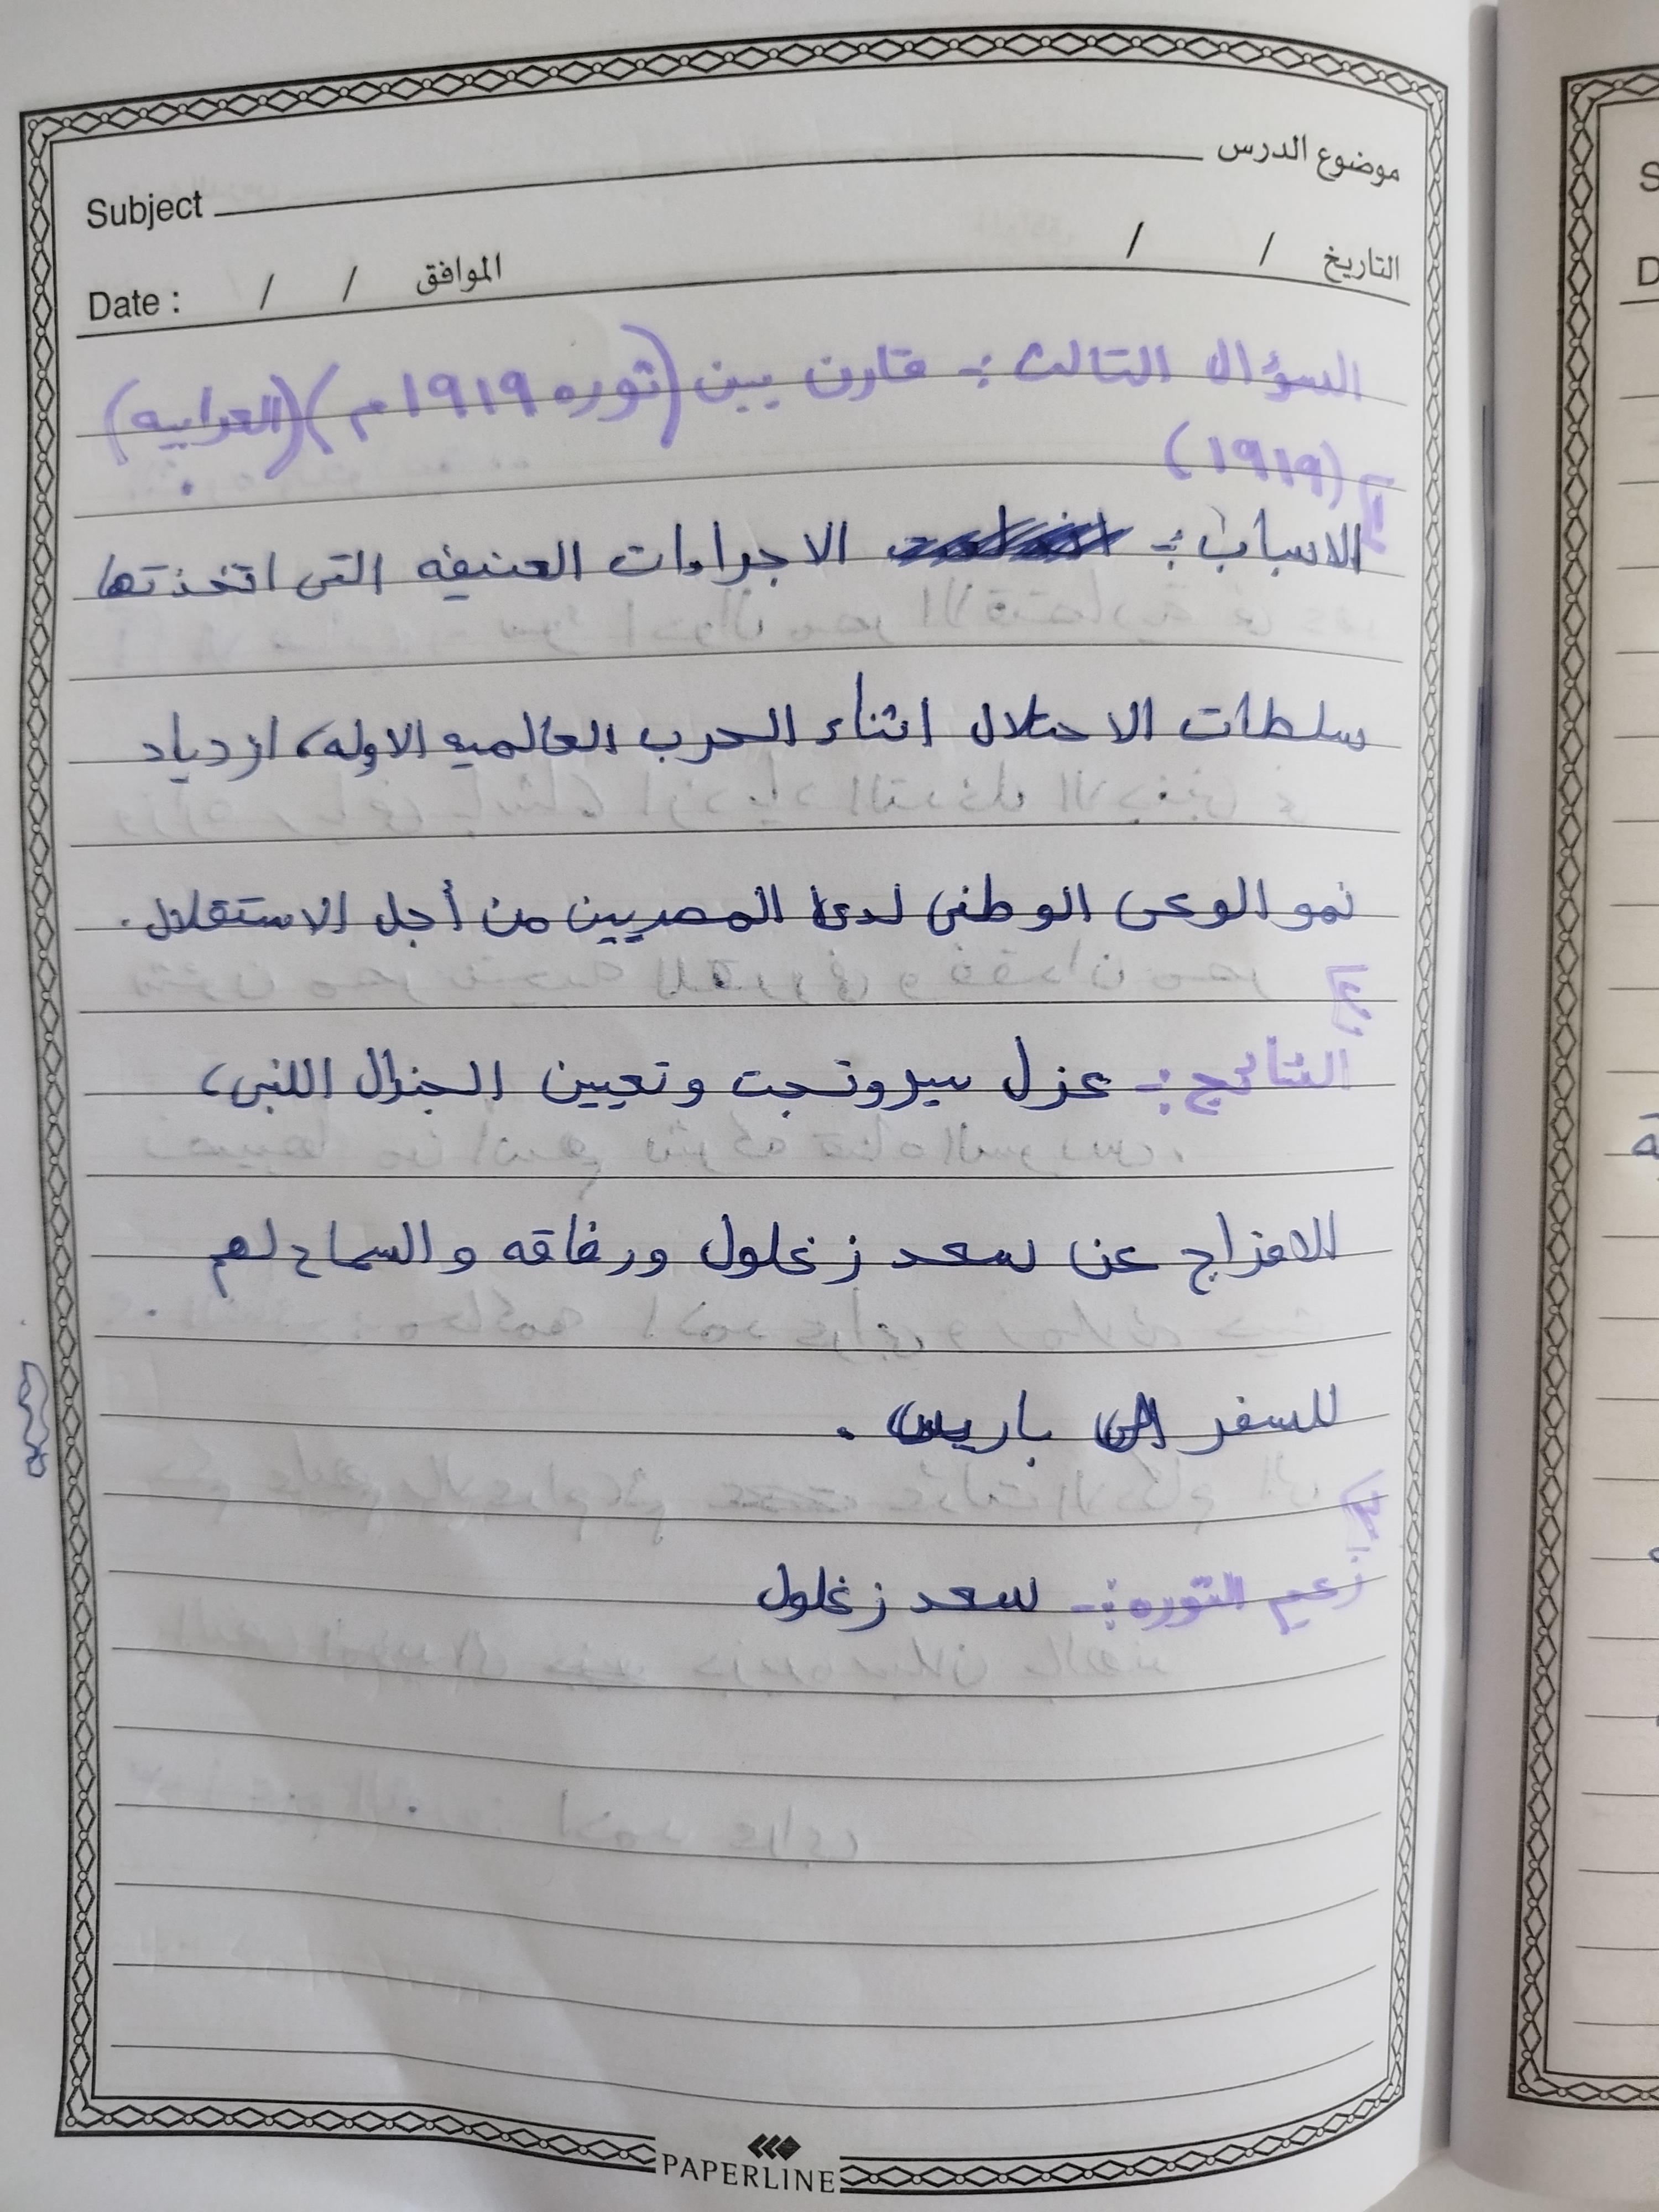 موضوع الدرس
Subject
التاريخ / /
الموافق / /
Date :
السؤال التالت :- قارن بين (ثوره ١٩١٩م) (العرابيه)
(١٩١٩)
الاسباب :- الاجراءات العنيفه التى اتخذتها
سلطات الاحتلال اثناء الحرب العالميه الاوله، ازدياد
نمو الوعى الوطنى لدى المصريين من أجل الاستقلال.
النتائج :- عزل سيروتجت وتعيين الجنرال اللنبى،
الافراج عن سعد زغلول ورفاقه والسماح لهم
للسفر الى باريس .
زعيم الثوره :- سعد زغلول
PAPERLINE